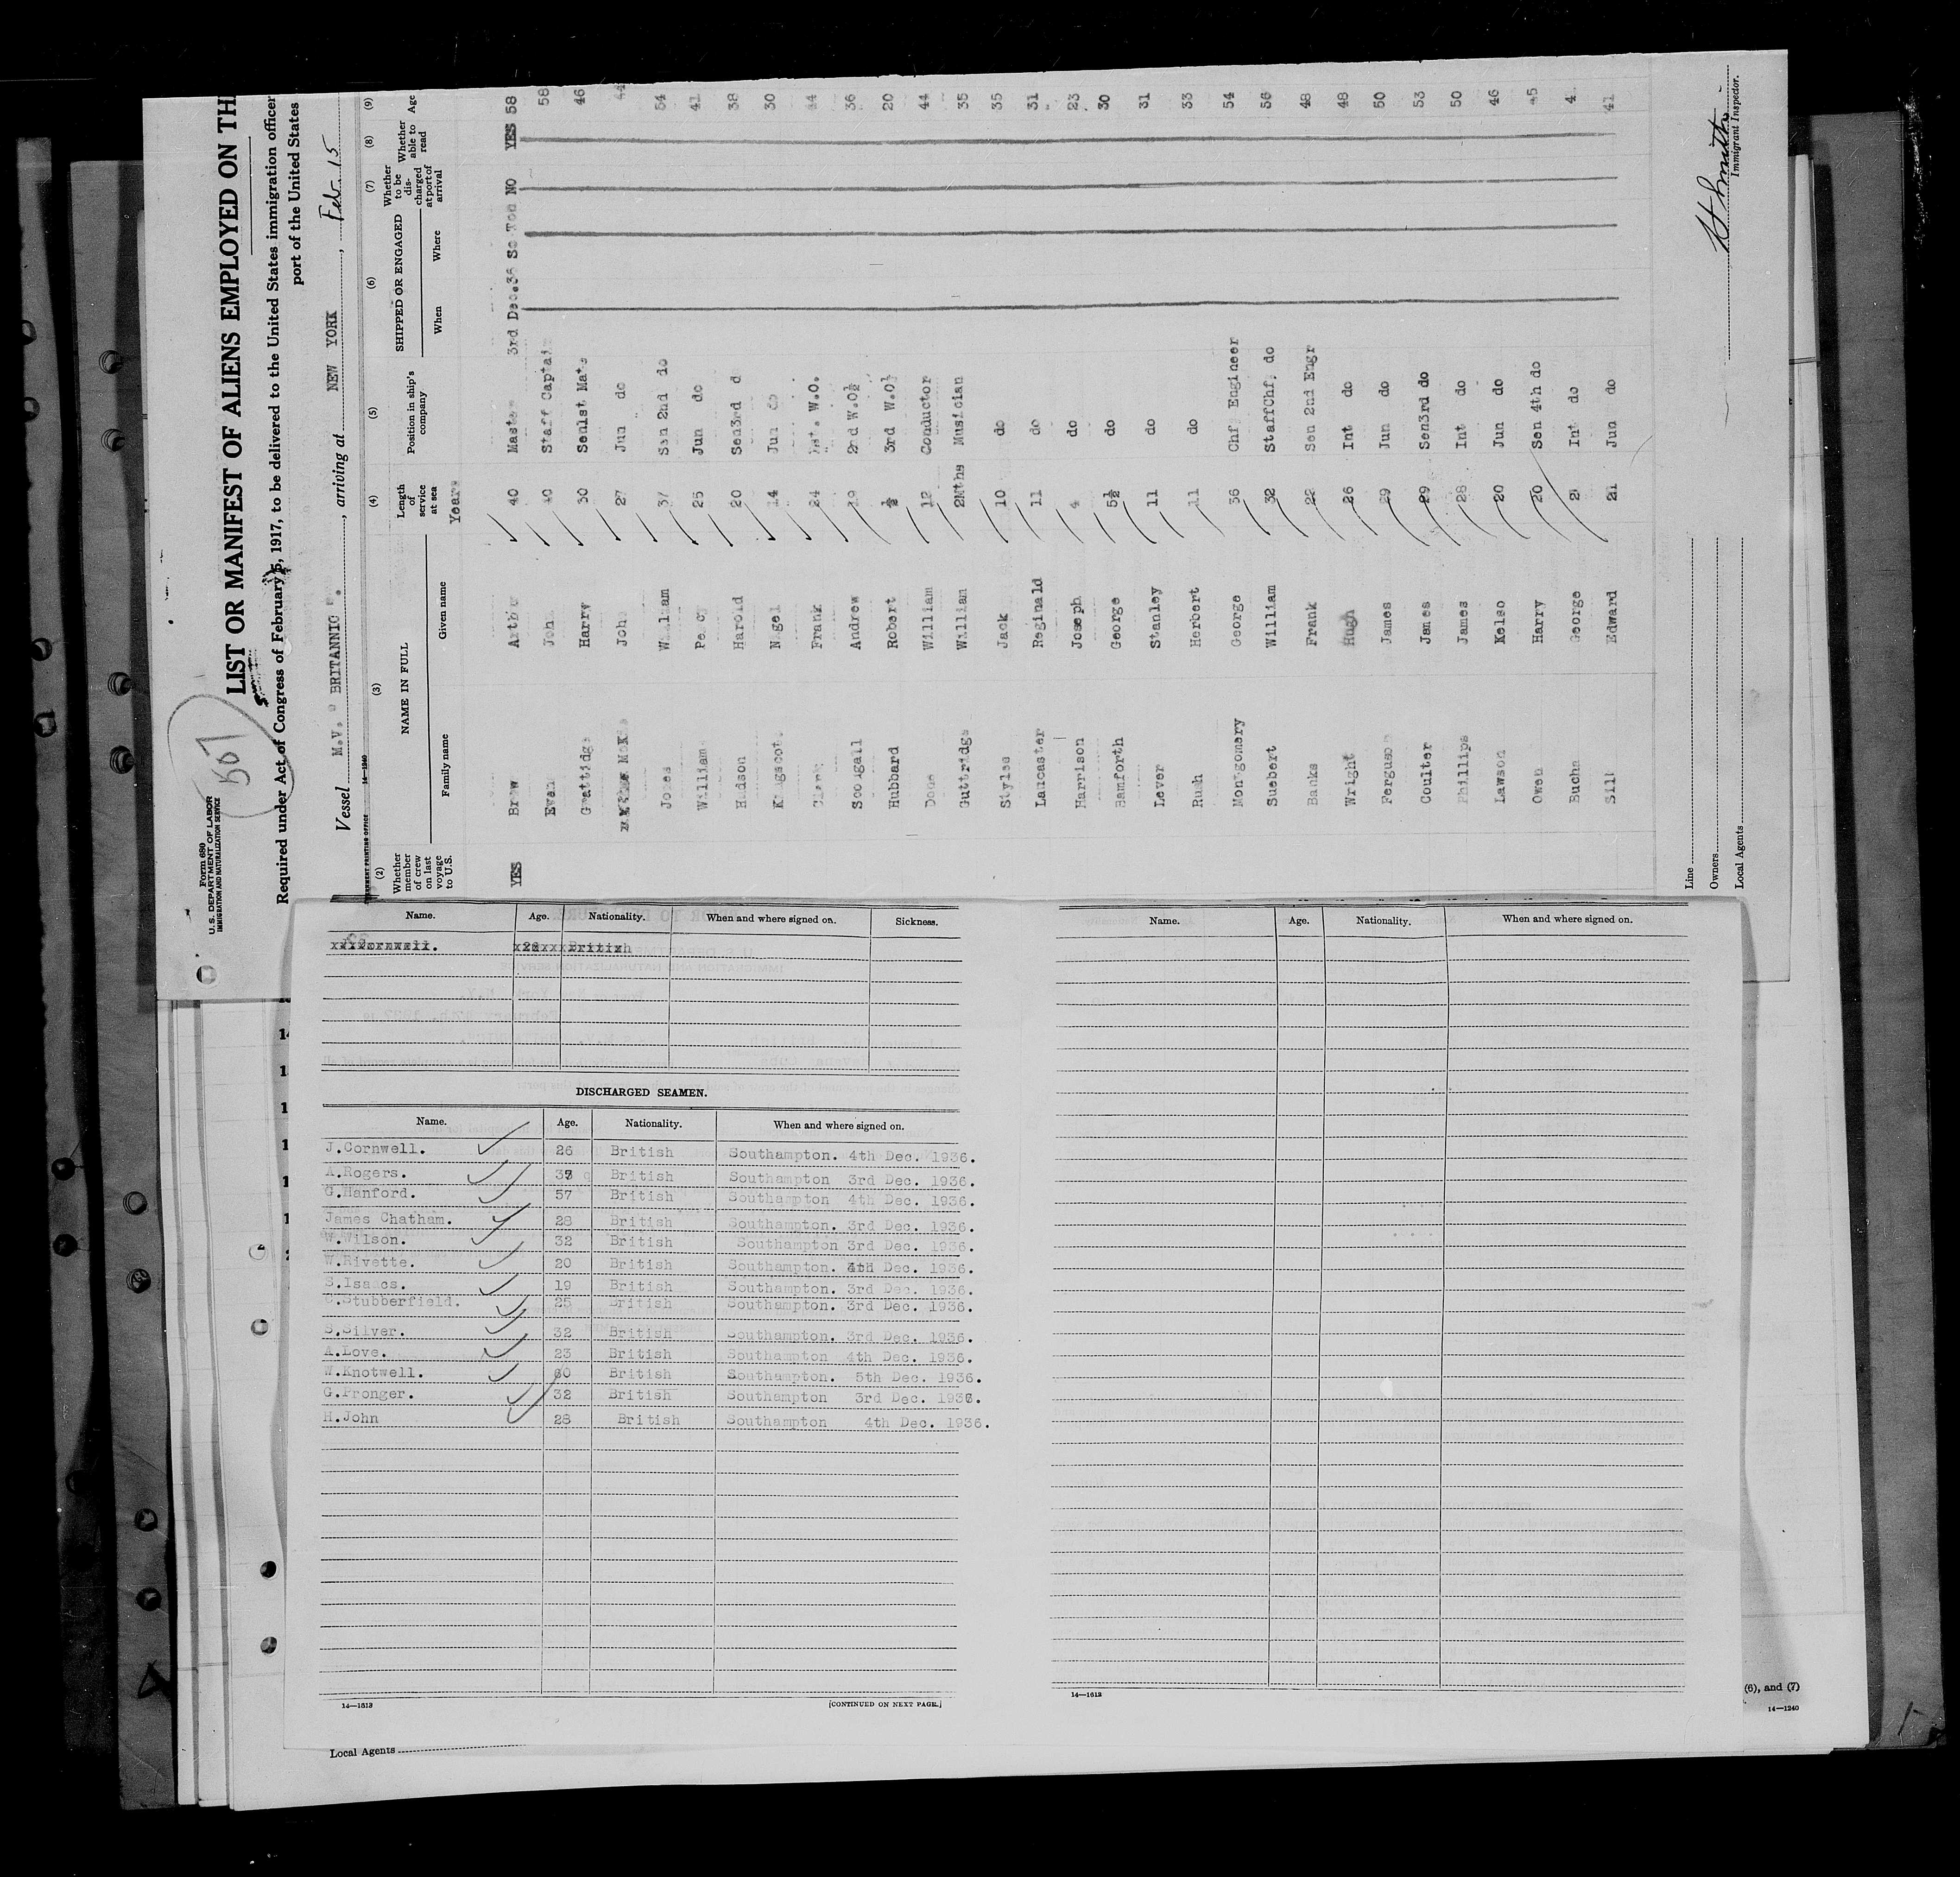 Form 680
U. S. DEPARTMENT OF LABOR
IMMIGRATION AND NATURALIZATION SERVICE
507
LIST OR MANIFEST OF ALIENS EMPLOYED ON TH
Required under Act of Congress of February 5, 1917, to be delivered to the United States immigration officer
port of the United States
Vessel M.V. " BRITANNIC ". , arriving at NEW YORK , Feb. 15
14—1240
(2) (3) (4) (5) (6) (7) (8) (9)
Whether member of crew on last voyage to U.S. NAME IN FULL Length of service at sea Position in ship's company SHIPPED OR ENGAGED Whether to be discharged at port of arrival Whether able to read Age
Family name Given name Years When Where
YES 40 3rd Dec.36 So Ton NO YES 58
Evan 40 Staff Captain 58
Harry 30 Sen1st Mate 46
27 Jun do 44
37 Sen 2nd do 54
25 Jun do 41
Hudson Harold 20 Sen3rd d 38
Nigel 14 Jun do 30
Frank 24 W.O. 44
Scougall Andrew 19 2nd W.O½ 36
Hubbard Robert ½ 3rd W.O½ 20
William 12 Conductor 44
Guttridge William 2Mths Musician 35
Styles Jack 10 do 35
Lancaster Reginald 11 do 31
Harrison Joseph 4 do 23
Bamforth George 5½ do 30
Lever Stanley 11 do 31
Rush Herbert 11 do 33
Montgomery George 36 Chf Engineer 54
Suebert William 32 StaffChf. do 56
Banks Frank 22 Sen 2nd Engr 48
Wright Hugh 26 Int do 48
Ferguson James 29 Jun do 50
Coulter James 29 Sen3rd do 53
Phillips James 28 Int do 50
Lawson Kelso 20 Jun do 46
Owen Harry 20 Sen 4th do 45
George Int do
Sill Edward 21 Jun do 41
Line
Owners
Local Agents
Immigrant Inspector.
Name. Age. Nationality. When and where signed on. Sickness.
DISCHARGED SEAMEN.
Name. Age. Nationality. When and where signed on.
J.Cornwell. 26 British Southampton. 4th Dec. 1936.
A.Rogers. British Southampton 3rd Dec. 1936.
G.Hanford. 57 British Southampton 4th Dec. 1936.
James Chatham. 28 British Southampton. 3rd Dec. 1936.
W.Wilson. 32 British Southampton 3rd Dec. 1936.
W.Rivette. 20 British Southampton. 4th Dec. 1936.
S.Isaacs. 19 British Southampton. 3rd Dec. 1936.
C.Stubberfield. 25 British Southampton. 3rd Dec. 1936.
S.Silver. 32 British Southampton. 3rd Dec. 1936.
A.Love. 23 British Southampton 4th Dec. 1936.
W.Knotwell. 60 British Southampton. 5th Dec. 1936.
G.Pronger. 32 British Southampton 3rd Dec. 1936.
H.John 28 British Southampton 4th Dec. 1936.
[CONTINUED ON NEXT PAGE.]
Local Agents
Name. Age. Nationality. When and where signed on.
14—1612
(6), and (7)
14—1240